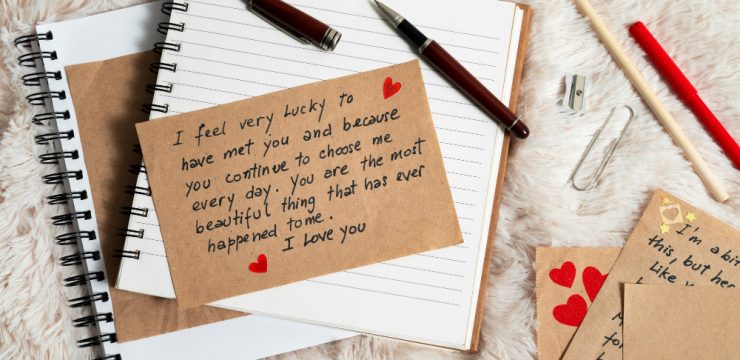 I feel very Lucky to
have met you and because
you continue to choose me
every day. You are the most
beautiful thing that has ever
happened to me.
I Love you
I'm a bit
this, but her
Like y